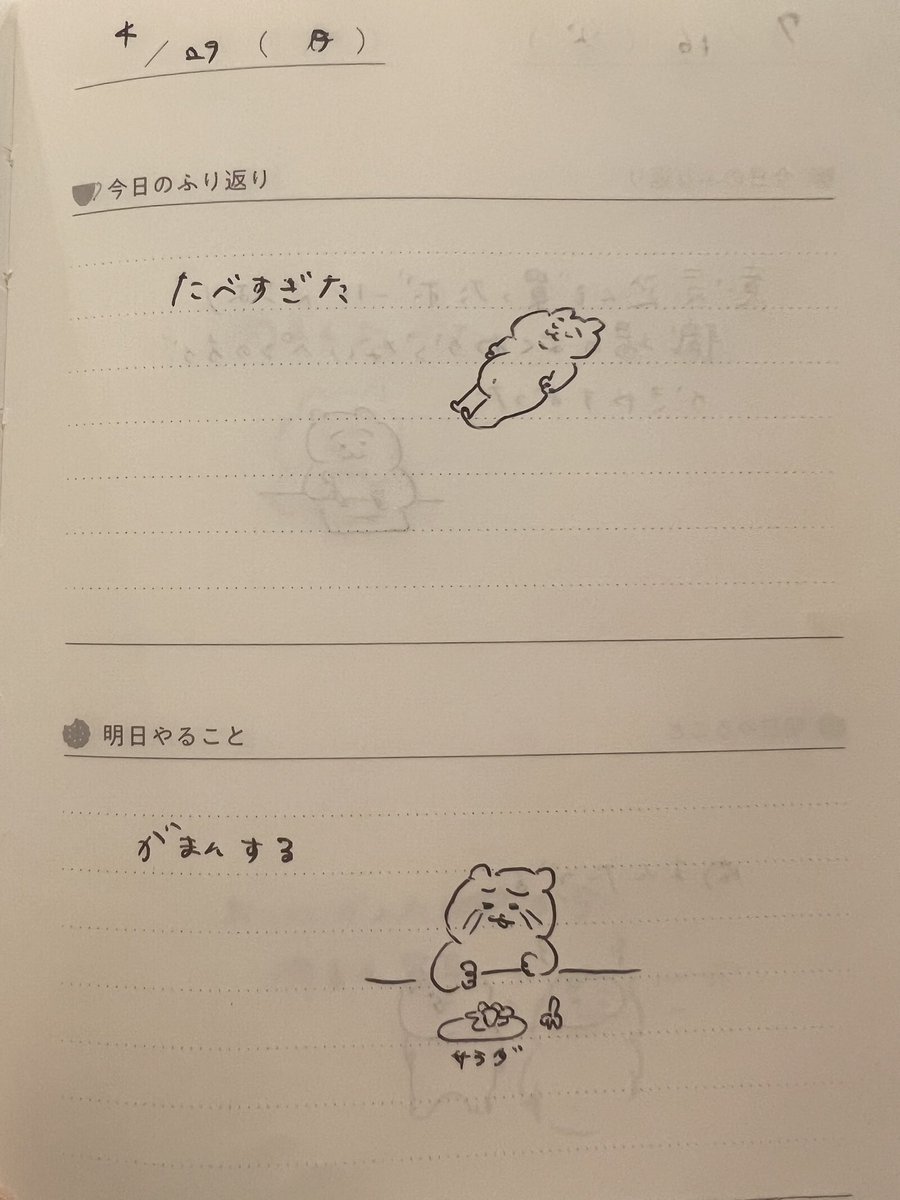 4/29(月)
今日のふり返り
たべすぎた
明日やること
がまんする
サラダ